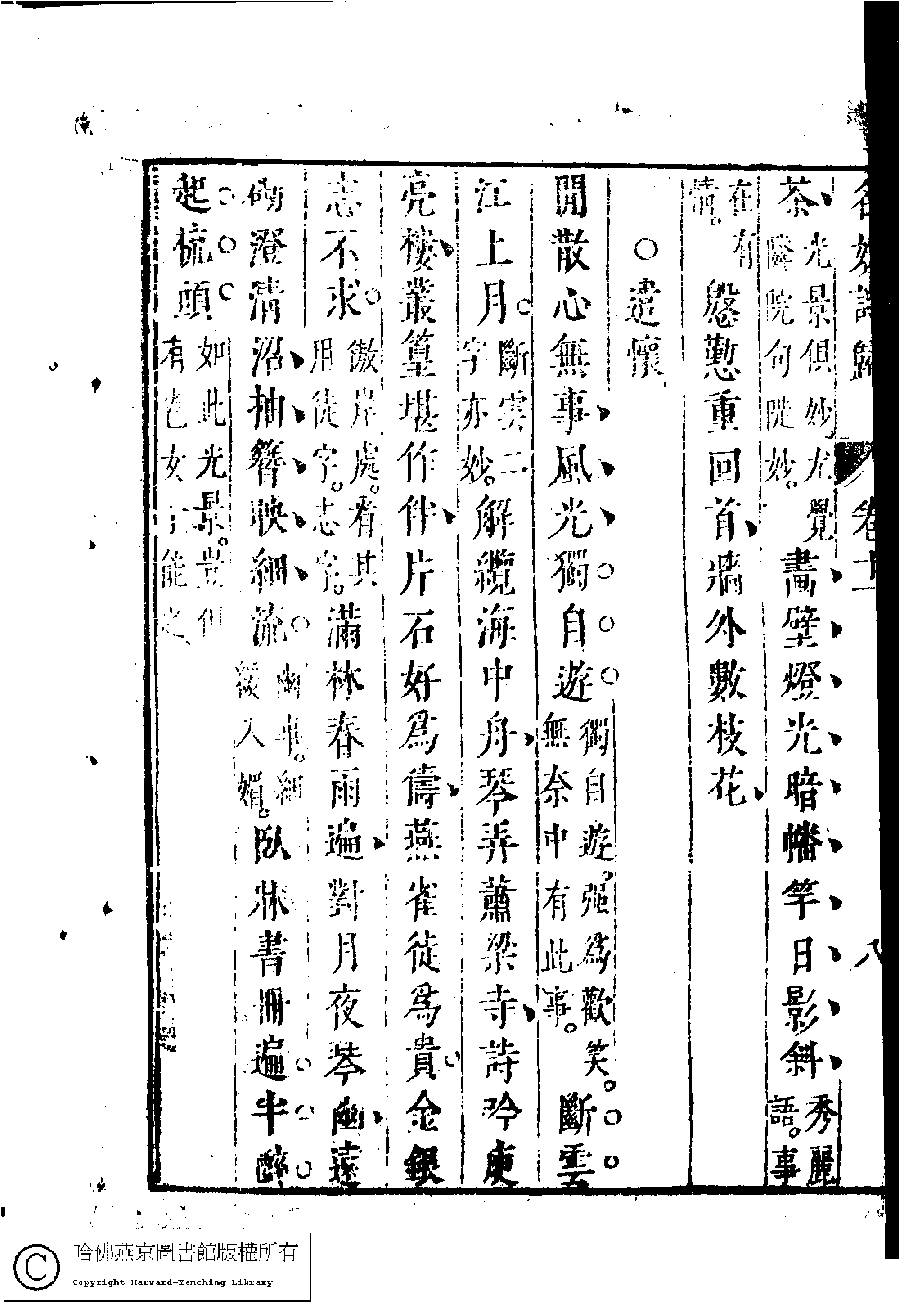 名媛詩歸 卷十一 八
茶光景俱妙尤覺隣院句陡妙。畫壁燈光暗幡竿日影斜秀麗語。事
在有情。慇懃重回首牆外數枝花
○遣懷
閒散心無事風光獨自遊獨自遊。强爲歡笑。無奈中有此事。斷雲
江上月。斷雲二字亦妙。解纜海中舟琴弄蕭梁寺詩吟庾
亮樓叢篁堪作伴片石好爲儔燕雀徒爲貴金銀
志不求。傲岸處。看其用徒字。志字。滿林春雨遍對月夜琴幽遠
砌澄清沼抽簪映細流幽事。細緻入媚。臥牀書冊遍半醉
起梳頭如此光景。豈但有色女子能之
哈佛燕京圖書館版權所有
Copyright Harvard-Yenching Library